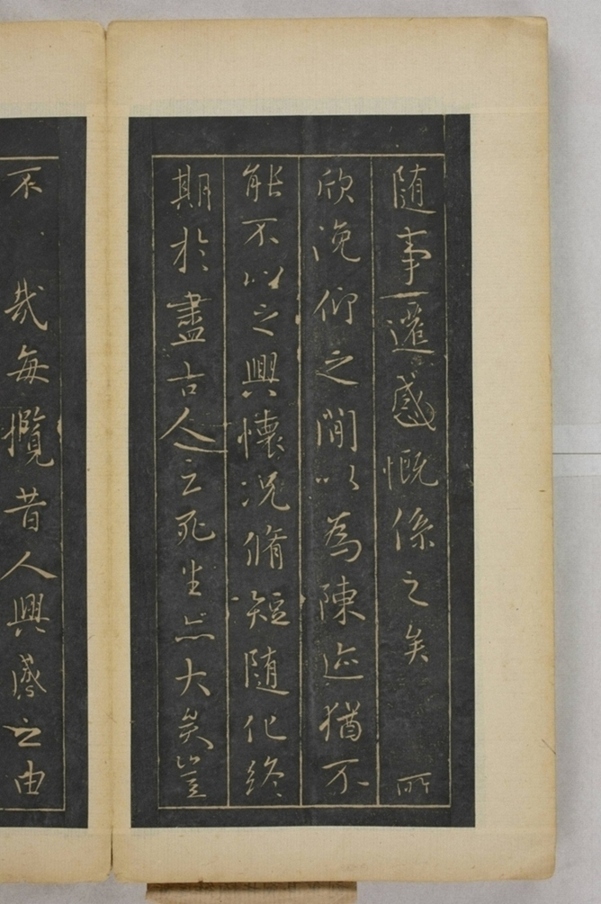 随事遷感慨係之矣所
欣俛仰之間以為陳迹猶不
能不以之興懷况脩短随化終
期於盡古人云死生亦大矣豈
不 哉每攬昔人興感之由